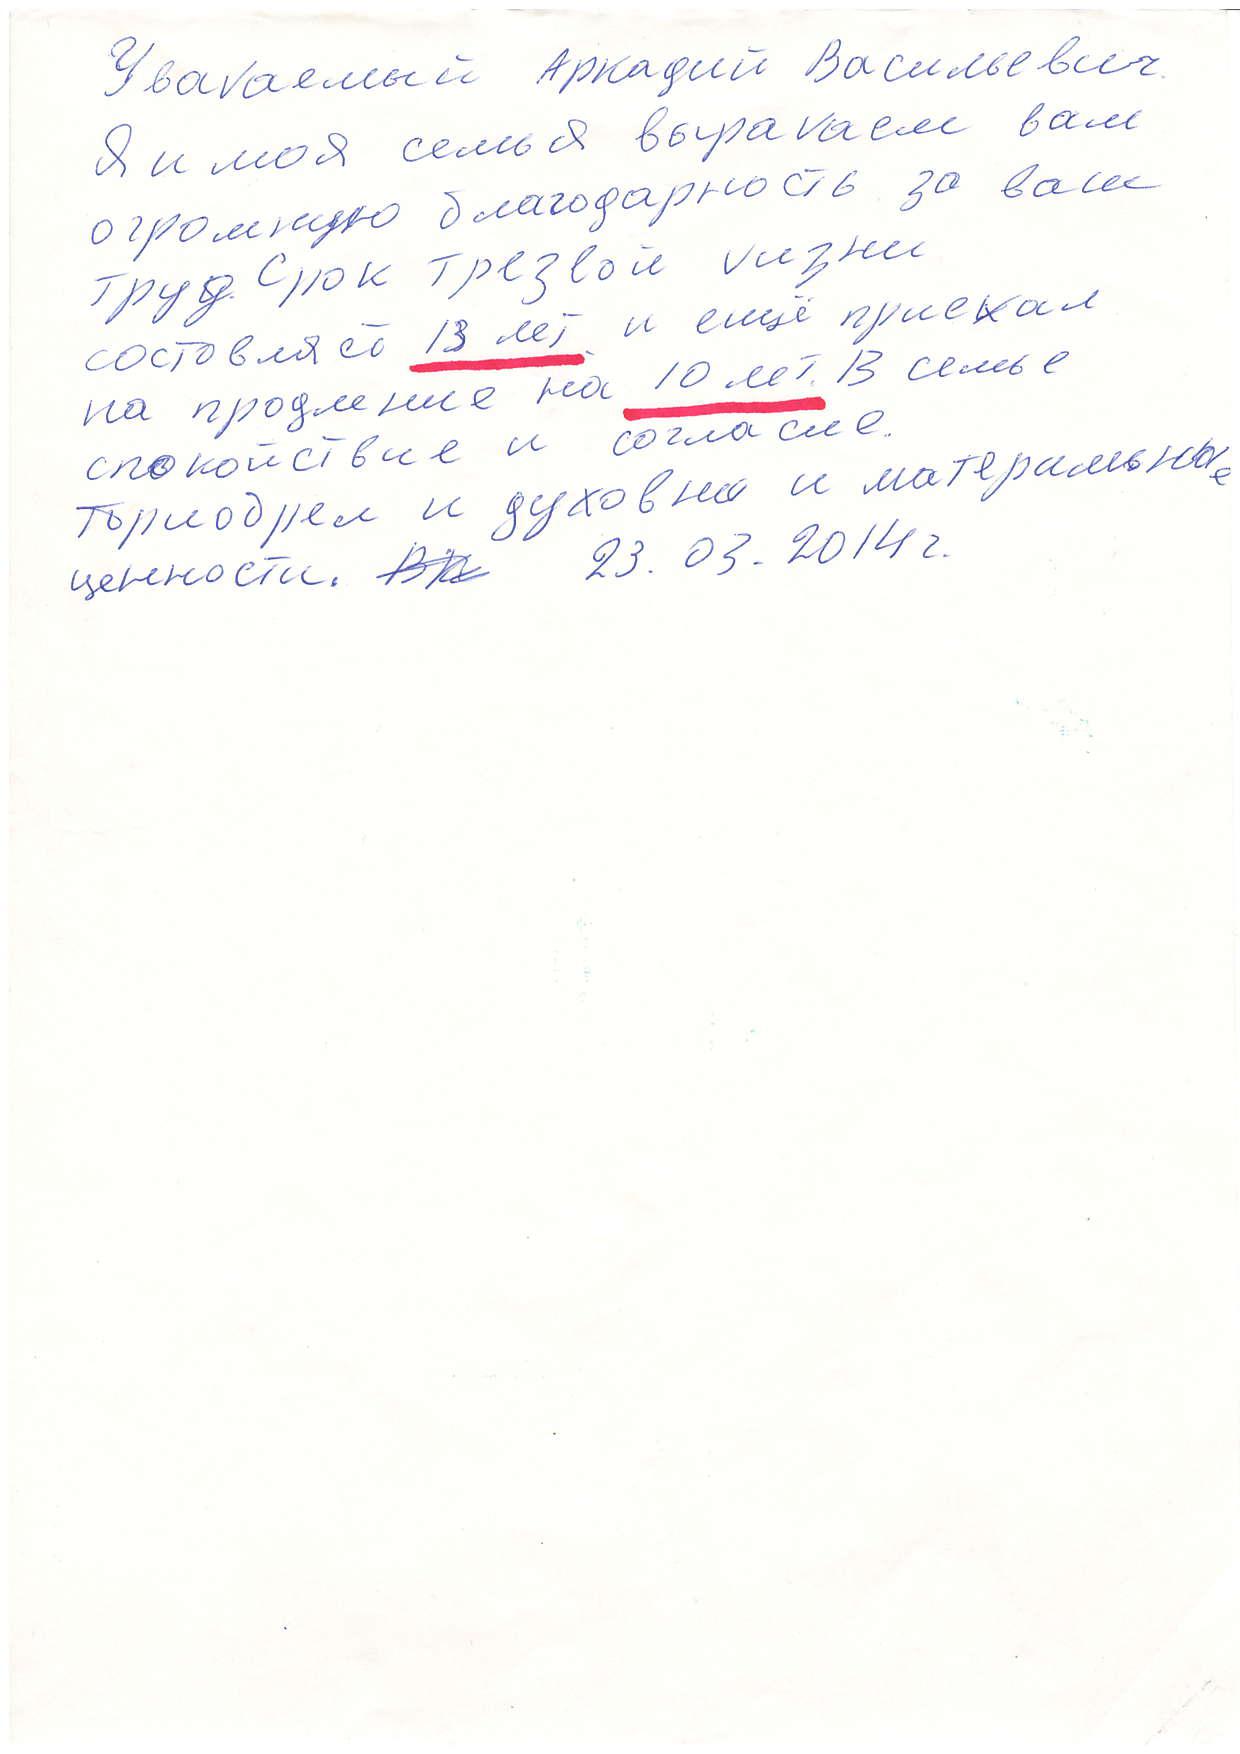 Уважаемый Аркадий Васильевич.
Я и моя семья выражаем вам
огромную благодарность за ваш
труд. Срок трезвой жизни
состовляет 13 лет и ещё приехал
на продление на 10 лет. В семье
спокойствие и согласие.
и духовна и материальные
ценности. 23.03.2014 г.